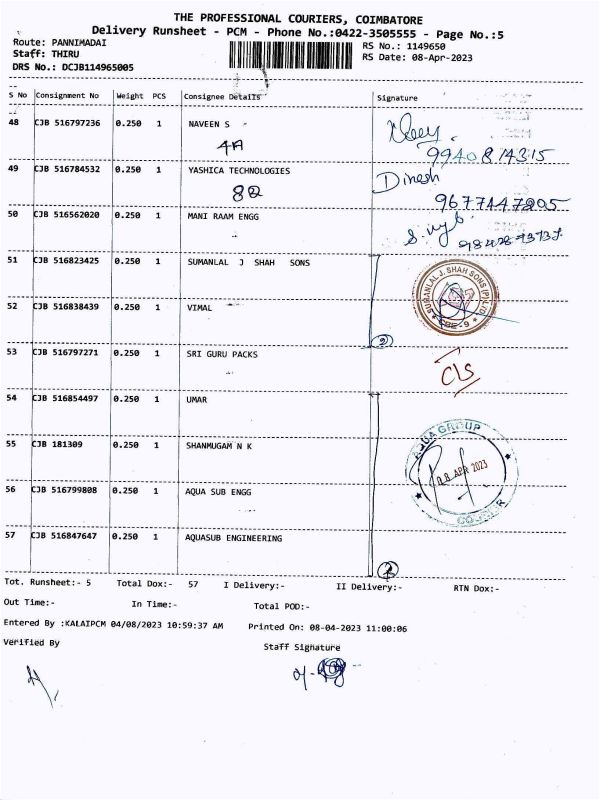 THE PROFESSIONAL COURIERS, COIMBATORE
Delivery Runsheet - PCM - Phone No.:0422-3505555 - Page No.:5
Route: PANNIMADAI
RS No.: 1149650
Staff: THIRU
RS Date: 08-Apr-2023
DRS No.: DCJB114965005
S No Consignment No Weight PCS Consignee Details Signature
48 CJB 516797236 0.250 1 NAVEEN S
4A
9940814315
49 CJB 516784532 0.250 1 YASHICA TECHNOLOGIES
Dinesh
82
9677447205
50 CJB 516562020 0.250 1 MANI RAAM ENGG
51 CJB 516823425 0.250 1 SUMANLAL J SHAH SONS
SUMANLAL J. SHAH SONS (P) LTD
CBE-9
52 CJB 516838439 0.250 1 VIMAL
2
53 CJB 516797271 0.250 1 SRI GURU PACKS
C/S
54 CJB 516854497 0.250 1 UMAR
55 CJB 181309 0.250 1 SHANMUGAM N K
AQUA GROUP
08 APR 2023
COURIER
56 CJB 516799808 0.250 1 AQUA SUB ENGG
57 CJB 516847647 0.250 1 AQUASUB ENGINEERING
Tot. Runsheet:- 5 Total Dox:- 57 I Delivery:- II Delivery:- RTN Dox:-
Out Time:- In Time:- Total POD:-
Entered By :KALAIPCM 04/08/2023 10:59:37 AM Printed On: 08-04-2023 11:00:06
Verified By
Staff Signature